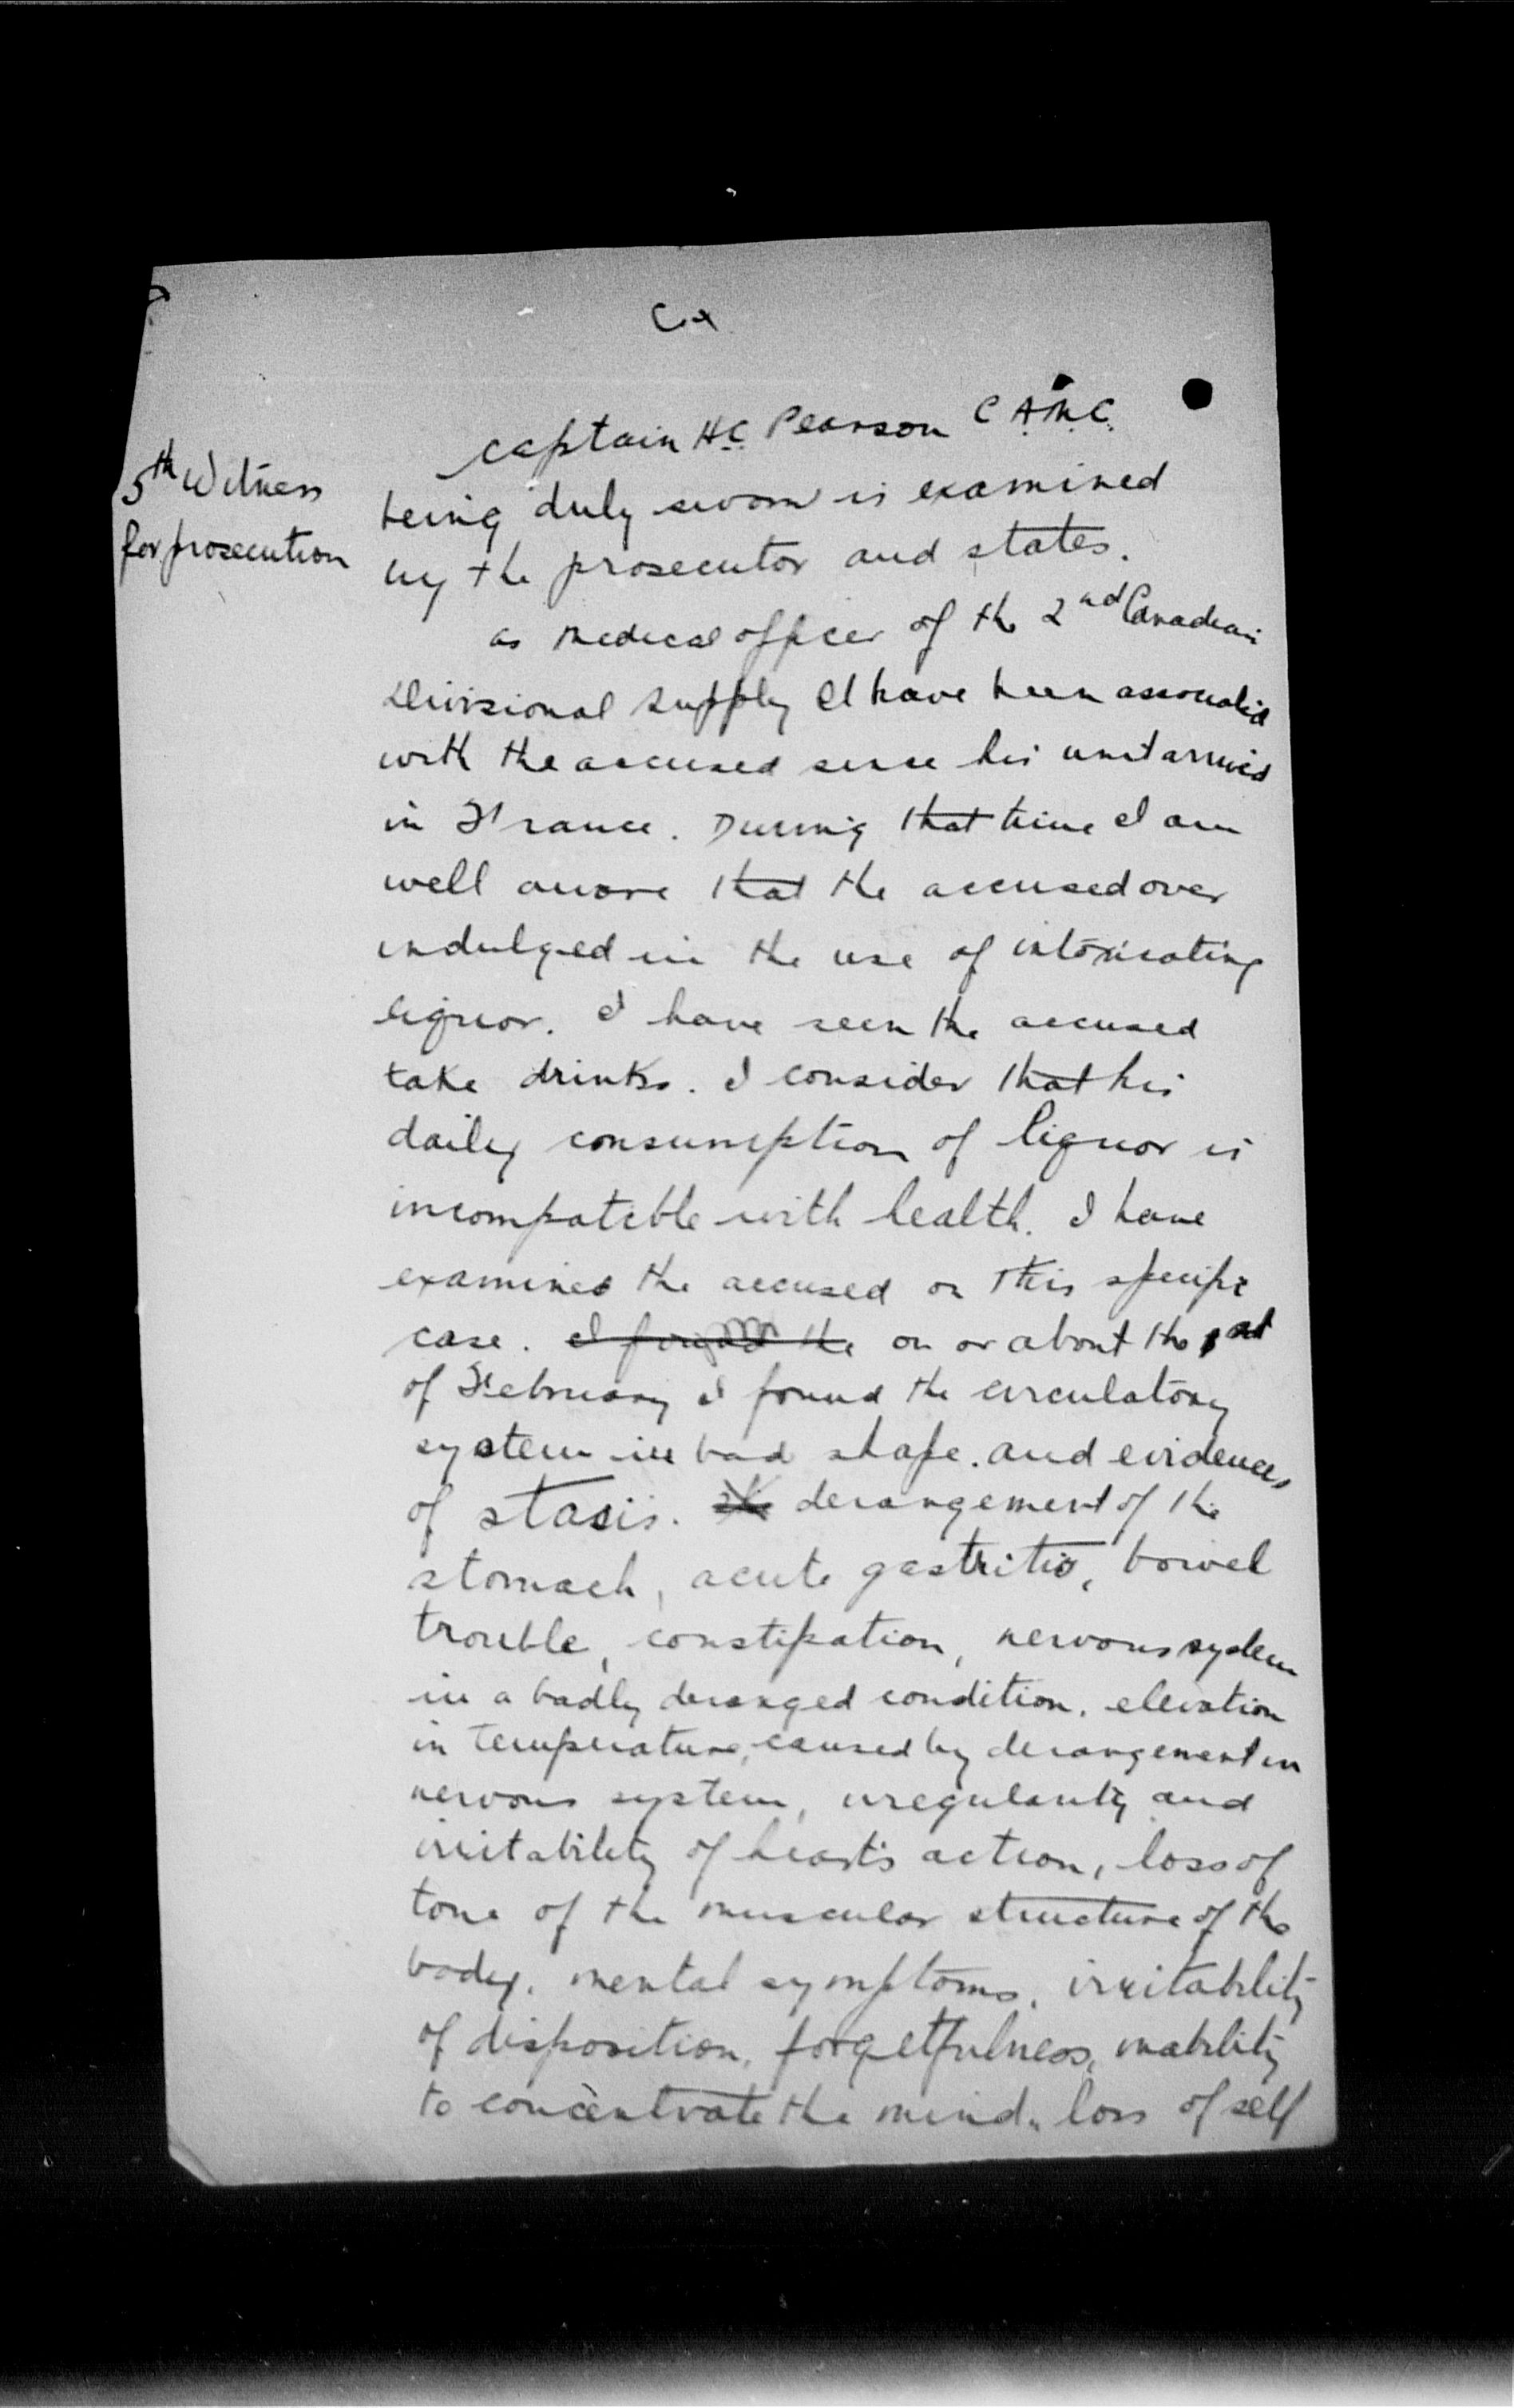 5th Witness
for prosecution
Captain H.C. Pearson C.A.M.C.
being duly sworn is examined
by the prosecutor and states.
as Medical officer of the 2nd Canadian
Divisional Supply I have been associated
with the accused since his unit arrived
in France. During that time I am
well aware that the accused over
indulged in the use of intoxicating
liquor. I have seen the accused
take drinks. I consider that his
daily consumption of liquor is
incompatible with health. I have
examined the accused on this specific
case. I found the on or about the 1st
of February I found the circulatory
system in bad shape. and evidences
of stasis. derangement of the
stomach, acute gastritis, bowel
trouble, constipation, nervous system
in a badly deranged condition, elevation
in temperature, caused by derangement in
nervous system, irregularity and
irritability of heart's action, loss of
tone of the muscular structure of the
body. mental symptoms, irritability
of disposition, forgetfulness, inability
to concentrate the mind, loss of self